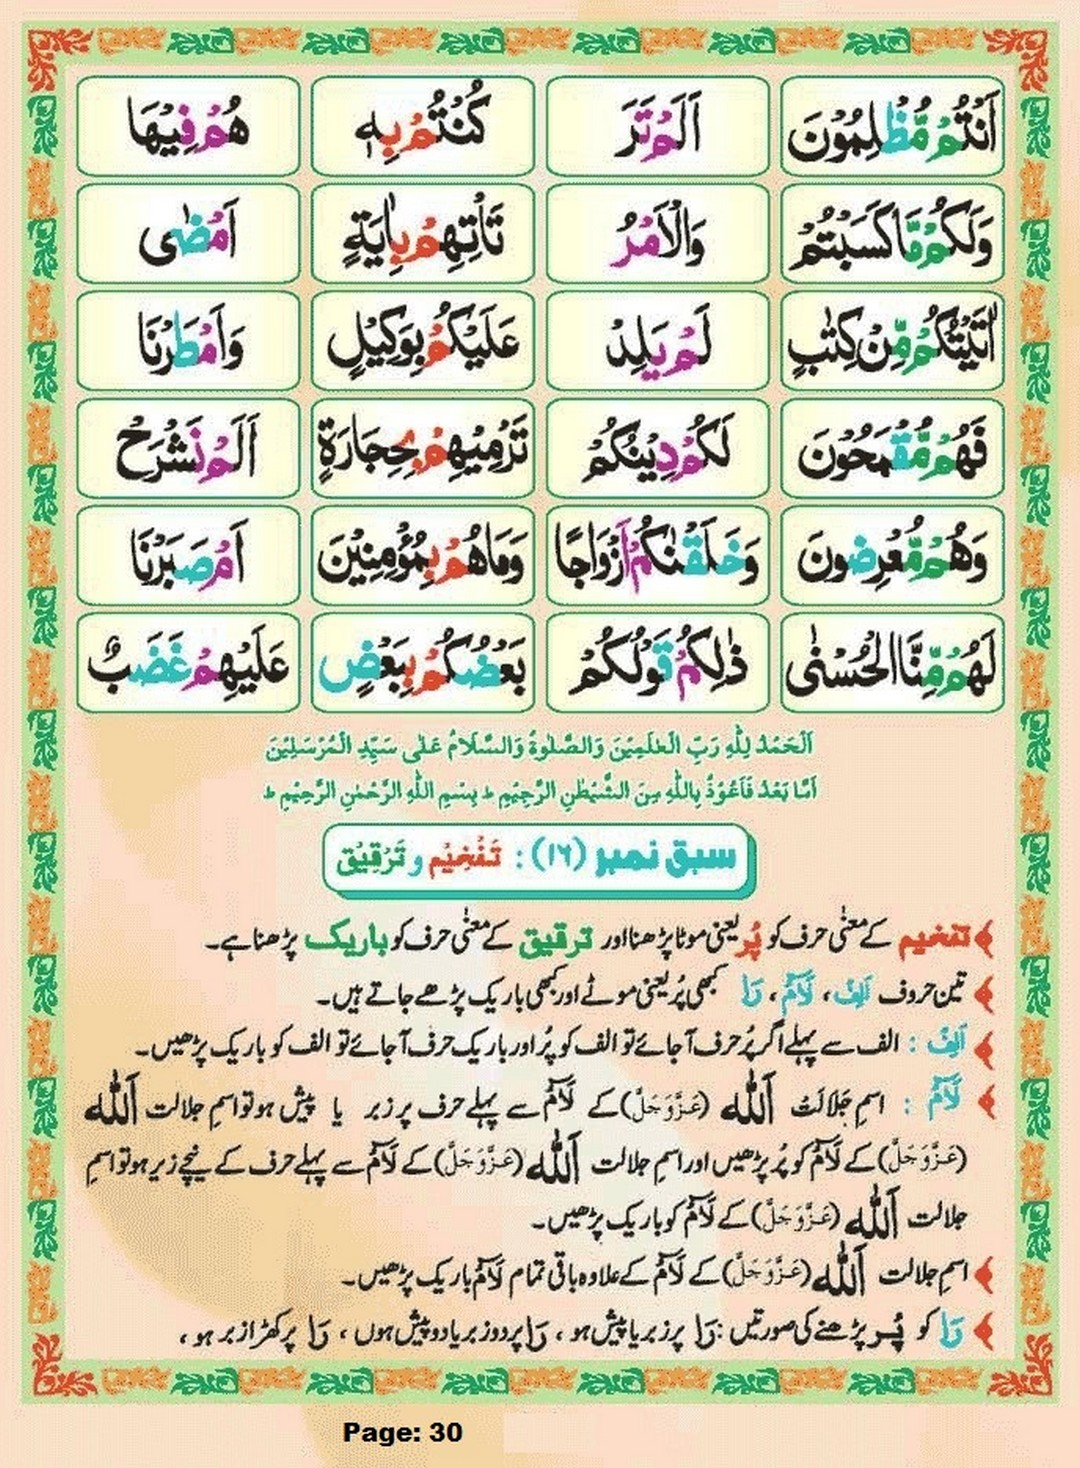 اَنْتُمْ مُّظْلِمُوْنَ اَلَمْ تَرَ كُنْتُمْ بِهٖ هُمْ فِيْهَا
وَلَكُمْ مَّا كَسَبْتُمْ وَالْاَمْرُ تَاْتِهِمْ بِاٰيَةٍ اَمْضٰى
اٰتَيْتُكُمْ مِّنْ كِتٰبٍ لَمْ يَلِدْ عَلَيْكُمْ بِوَكِيْلٍ وَاَمْطَرْنَا
فَهُمْ مُّقْمَحُوْنَ لَكُمْ دِيْنُكُمْ تَرْمِيْهِمْ بِحِجَارَةٍ اَلَمْ نَشْرَحْ
وَهُمْ مُّعْرِضُونَ وَخَلَقْنٰكُمْ اَزْوَاجًا وَمَاهُمْ بِمُؤْمِنِيْنَ اَمْ صَبَرْنَا
لَهُمْ مِّنَّا الْحُسْنٰى ذٰلِكُمْ قَوْلُكُمْ بَعْضُكُمْ بِبَعْضٍ عَلَيْهِمْ غَضَبٌ
اَلْحَمْدُ لِلّٰهِ رَبِّ الْعٰلَمِيْنَ وَالصَّلٰوةُ وَالسَّلَامُ عَلٰى سَيِّدِ الْمُرْسَلِيْنَ
اَمَّا بَعْدُ فَاَعُوْذُ بِاللّٰهِ مِنَ الشَّيْطٰنِ الرَّجِيْمِ ط بِسْمِ اللّٰهِ الرَّحْمٰنِ الرَّحِيْمِ ط
سبق نمبر (۱۶) : تَفْخِيْم و تَرْقِيْق
تفخیم کے معنٰی حرف کو پُر یعنی موٹا پڑھنا اور ترقیق کے معنٰی حرف کو باریک پڑھنا ہے۔
تین حروف اَلِفْ، لَامْ، رَا کبھی پُر یعنی موٹے اور کبھی باریک پڑھے جاتے ہیں۔
اَلِفْ : الف سے پہلے اگر پُر حرف آجائے تو الف کو پُر اور باریک حرف آجائے تو الف کو باریک پڑھیں۔
لَامْ : اسمِ جَلَالَتْ اَللّٰه (عَزَّوَجَلَّ) کے لَامْ سے پہلے حرف پر زبر یا پیش ہو تو اسمِ جلالت اَللّٰه
(عَزَّوَجَلَّ) کے لَامْ کو پُر پڑھیں اور اسمِ جلالت اَللّٰه (عَزَّوَجَلَّ) کے لَامْ سے پہلے حرف کے نیچے زیر ہو تو اسمِ
جلالت اَللّٰه (عَزَّوَجَلَّ) کے لَامْ کو باریک پڑھیں۔
اسمِ جلالت اَللّٰه (عَزَّوَجَلَّ) کے لَامْ کے علاوہ باقی تمام لَامْ باریک پڑھیں۔
رَا کو پُر پڑھنے کی صورتیں : رَا پر زبر یا پیش ہو ، رَا پر دو زبر یا دو پیش ہوں ، رَا پر کھڑا زبر ہو ،
Page: 30